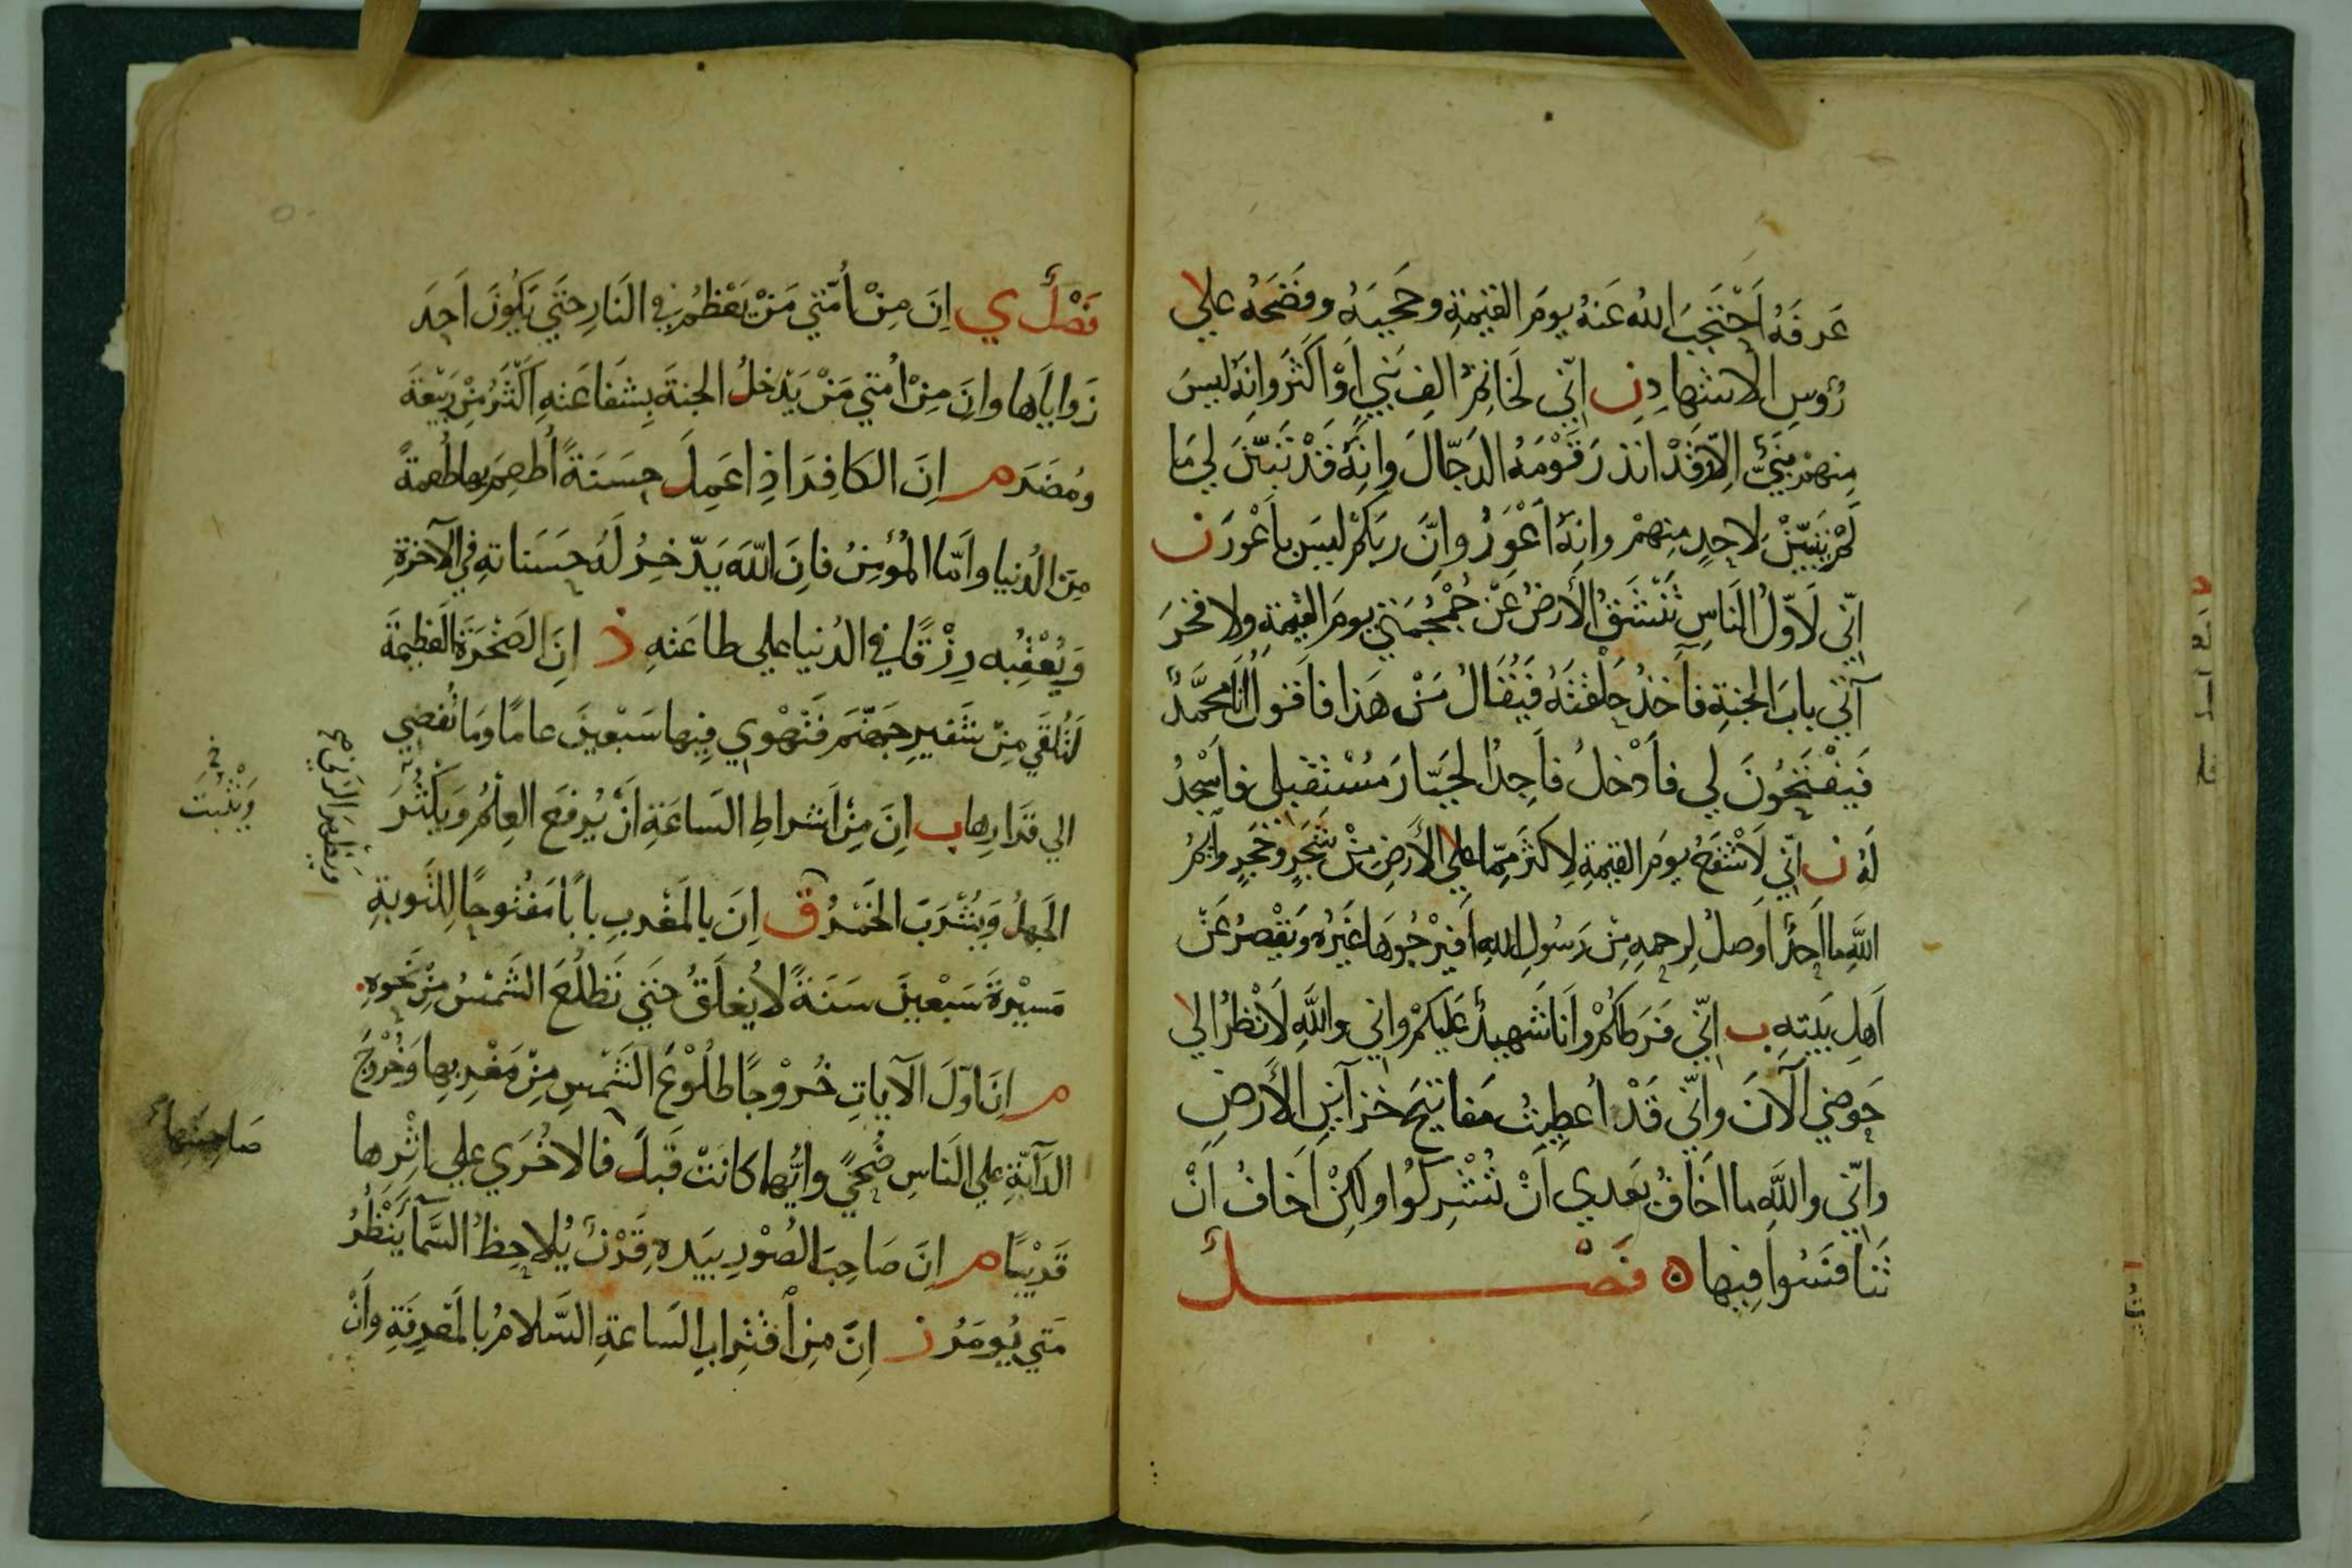 عَرفَهُ اَحْتَجَبَ اللهُ عَنهُ يومَ القيٰمةِ وحجبَهُ وفضَحَهُ علي
رُؤسِ الاشهادِ ن اِنّي لَخاتِمُ الفِ نَبيٍّ اَوْ اَكثَرَ وانهُ ليسَ
مِنهمْ نبيٌّ اِلّا وقَدْ انذرَ قَوْمَهُ الدَجّالَ وانِهُ قَدْ تَبيّنَ لي مَا
لَمْ يَتبيّنْ لاحدٍ مِنهمْ وانهُ اَعْوَرُ واِنَّ ربكمْ ليسَ باَعْورَ ن
اِنّي لَاَوّلُ النَاسِ تَنْشَقُ الأَرضُ عَنْ جُمْجُمَتي يومَ القيٰمةِ ولا فخرَ
آتي بابَ الجنةِ فآخذُ بحَلْقتهُ فيُقالُ مَنْ هَذا فاَقولُ اَنَا محمَّدٌ
فَيفْتَحُونَ لي فاَدْخلُ فاَجِدُ الجَبّارَ مُسْتقبلي فاَسْجدُ
لَهُ ن اِنّي لَاَشْفَعُ يومَ القيٰمةِ لِاكثَرَ مِمّا علي الأَرضِ مِنْ شَجَرٍ وحَجَرٍ وآيمُ
اللَّهِ ما اَحدٌ اَوصلُ لِرحمهِ مِنْ رَسُولِ اللهِ افيَرْجُوهَا غَيْرُه ويَقْصرُ عَنْ
اَهلِ بَيتهِ ب اِنّي فَرَطٌ لكُمْ واَنَا شَهيدٌ عَليكُمْ واني واللَّهِ لَاَنْظرُ الي
حَوضي الآنَ واِنّي قَدْ اُعطِيتُ مَفاتيحَ خزآينِ الأَرضِ
واِنّي واللَّهِ ما اَخَافُ بَعدي اَنْ تُشْرِكُوا ولكِنْ اَخافُ اَنْ
تَنافَسُوا فيها ه فَصْــــــلٌ
فَصْلٌ ي اِنَ مِنْ اُمّتي مَنْ يَعْظمُ في النَارِ حتَي يكُونَ اَحدَ
زَواياَها وانَ مِنْ اُمّتي مَنْ يَدْخلُ الجنةَ بِشفَاعَتهِ اَكْثَرُ مِنْ رَبيْعَةَ
ومُضَرَ م اِنَ الكافِرَ اذِا عَمِلَ حسَنَةً اُطعِمَ بها طُعمةً
مِنَ الدُنيا واَمّا المُؤمِنُ فانَ اللّهَ يدّخرُ لَهُ حسَناتهِ في الآخرةِ
وَيُعْقِبُه رِزْقًا في الدُنيا علي طاعَتهِ ذ اِنَ الصَخْرَةَ العَظيمةَ
لَتُلقَي مِنْ شَفيرِ جَهنّمَ فتَهْوي فيها سَبْعينَ عامًا ومَا تُفضي
الي قَرارِها ب اِنَ مِنْ اَشراطِ السَاعَةِ اَنْ يُرفعَ العِلمُ وَيكثُرَ
الجَهلُ ويُشْرَبَ الخَمْرُ ق اِنَ بالمَغْربِ باباً مَفتُوحًا لِلتَوبةِ
مَسيْرةَ سَبْعينَ سَنةً لا يُغلَقُ حتَي تَطلُعَ الشَمْسُ مِنْ نَحوهِ
م اِنَ اَوّلَ الآياتِ خُروْجًا طُلُوْعُ الشَمْسِ مِنْ مَغْربِها وَخُرْوْجُ
الدآبّةِ علي النَاسِ ضُحيً وايُّهما كانَتْ قَبلُ فالاخُرَي علي اثْرِها
قَريْبًا م اِنَ صَاحبَ الصُوْرِ بيَدهِ قَرْنٌ يُلاحِظُ السَّمآ يَنْظُرُ
مَتي يُومَرُ ز اِنّ مِنِ اْقتِرابِ السَاعةِ السَّلامُ بالمَعرفةِ واَنْ
وَيَثْبُتَ
وَيظهرَ الزنَي
صَاحِبتِها